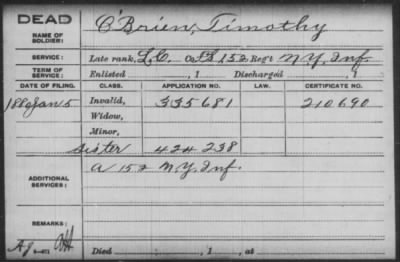 DEAD
NAME OF SOLDIER: O'Brien, Timothy
SERVICE: Late rank, L.C. Co. F.S, 152 Regt N.Y. Inf.
TERM OF SERVICE: Enlisted , 1 Discharged , 1
DATE OF FILING. CLASS. APPLICATION NO. LAW. CERTIFICATE NO.
Jan 5 Invalid, 335681 210690
Widow,
Minor,
Sister 424238
ADDITIONAL SERVICES: A 152 N.Y. Inf.
REMARKS:
Died , 1 , at